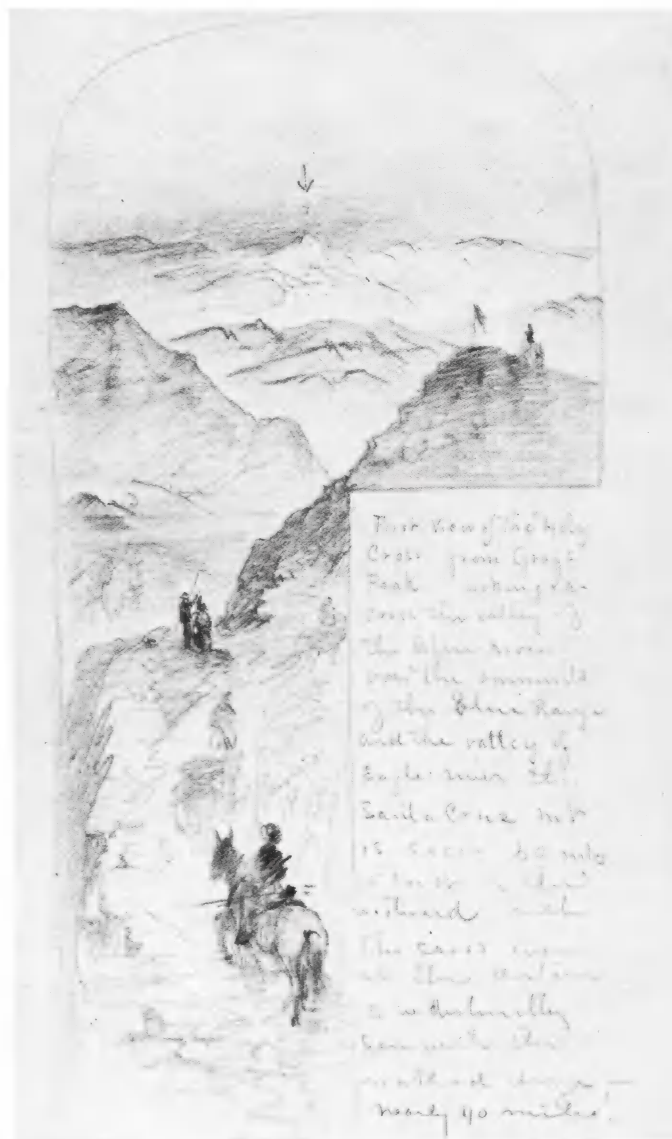 First View of the Holy
Cross from Gray's
Peak looking a-
cross the valley of
the
over the summits
of the Blue Range
and the valley of
Eagle river
Santa Cruz Mt
is seen 40 miles
westward with
the cross
at this distance
is distinctly
seen with the
naked eye —
nearly 40 miles!